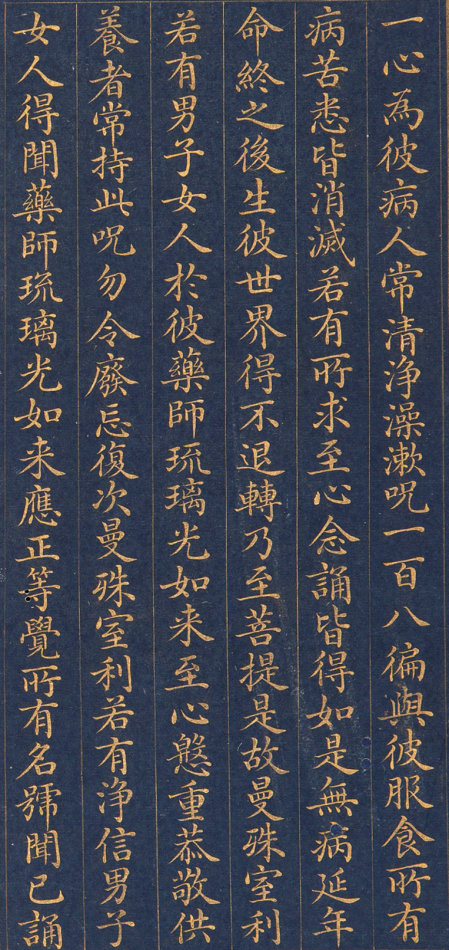 一心為彼病人常清淨澡漱呪一百八徧與彼服食所有
病苦悉皆消滅若有所求至心念誦皆得如是無病延年
命終之後生彼世界得不退轉乃至菩提是故曼殊室利
若有男子女人於彼藥師琉璃光如来至心慇重恭敬供
養者常持此呪勿令廢忘復次曼殊室利若有浄信男子
女人得聞藥師琉璃光如来應正等覺所有名號聞已誦